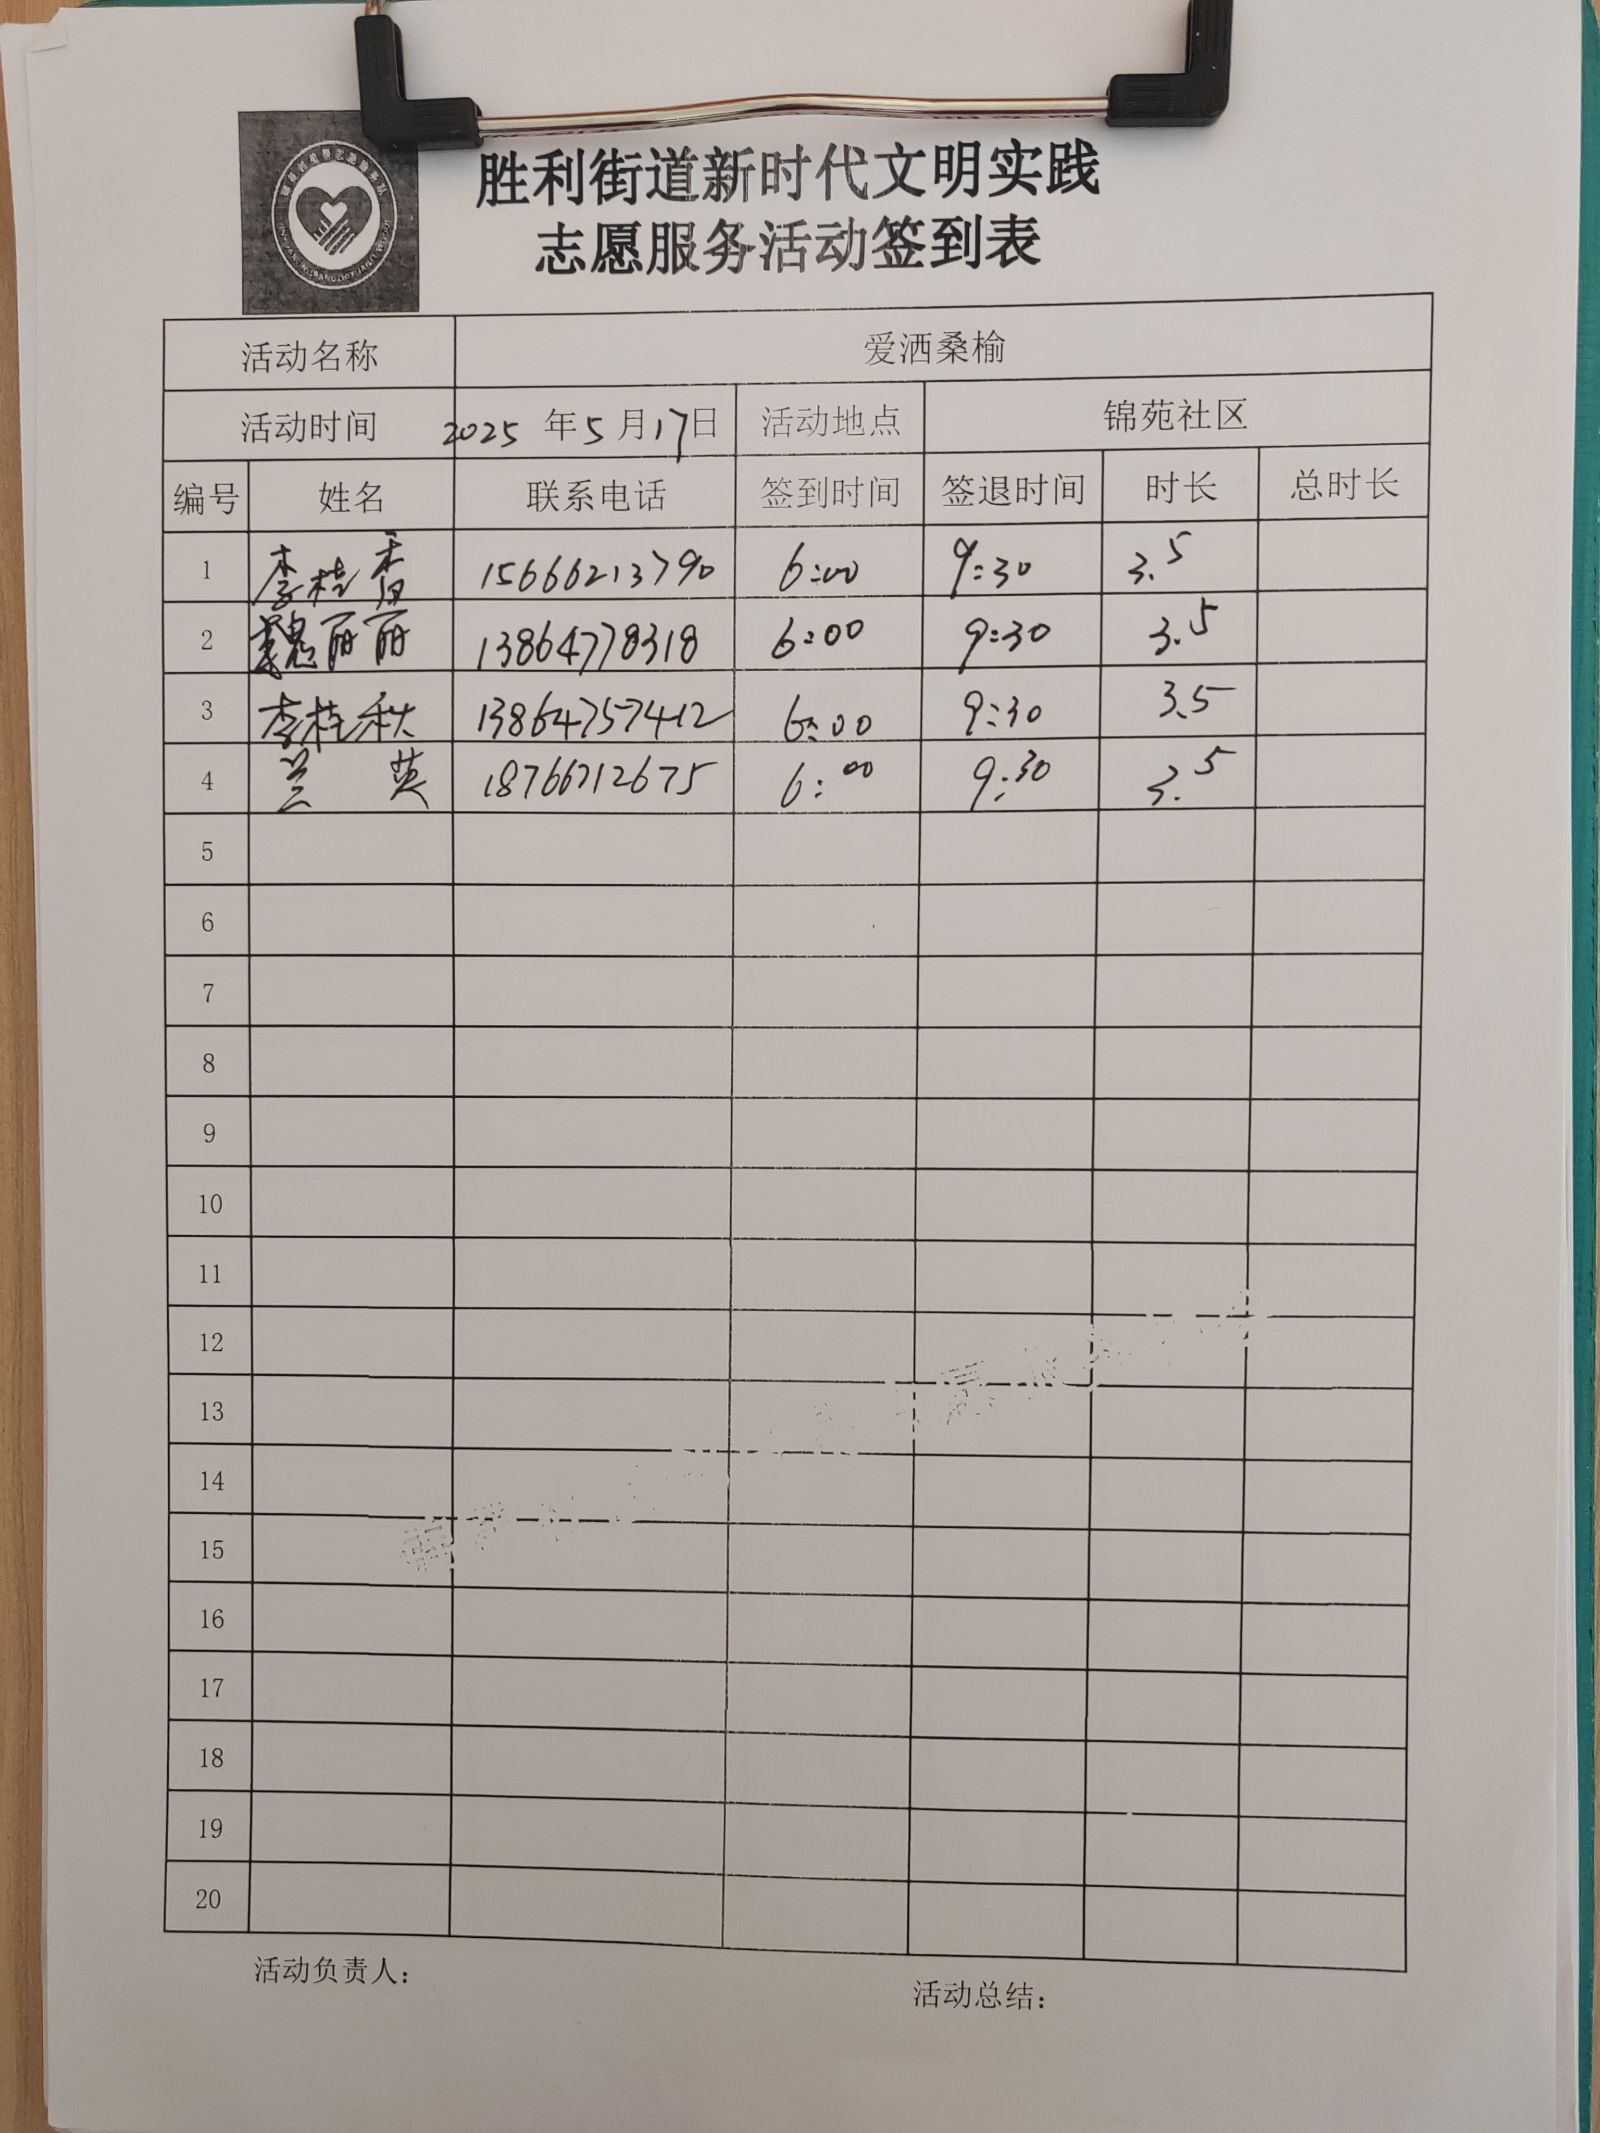 胜利街道新时代文明实践
志愿服务活动签到表
活动名称 爱洒桑榆
活动时间 2025 年 5 月 17 日 活动地点 锦苑社区
编号 姓名 联系电话 签到时间 签退时间 时长 总时长
1 李桂香 15666213790 6:00 9:30 3.5
2 魏丽丽 13864778318 6:00 9:30 3.5
3 李桂秋 13864757412 6:00 9:30 3.5
4 兰英 18766712675 6:00 9:30 3.5
5
6
7
8
9
10
11
12
13
14
15
16
17
18
19
20
活动负责人: 活动总结: